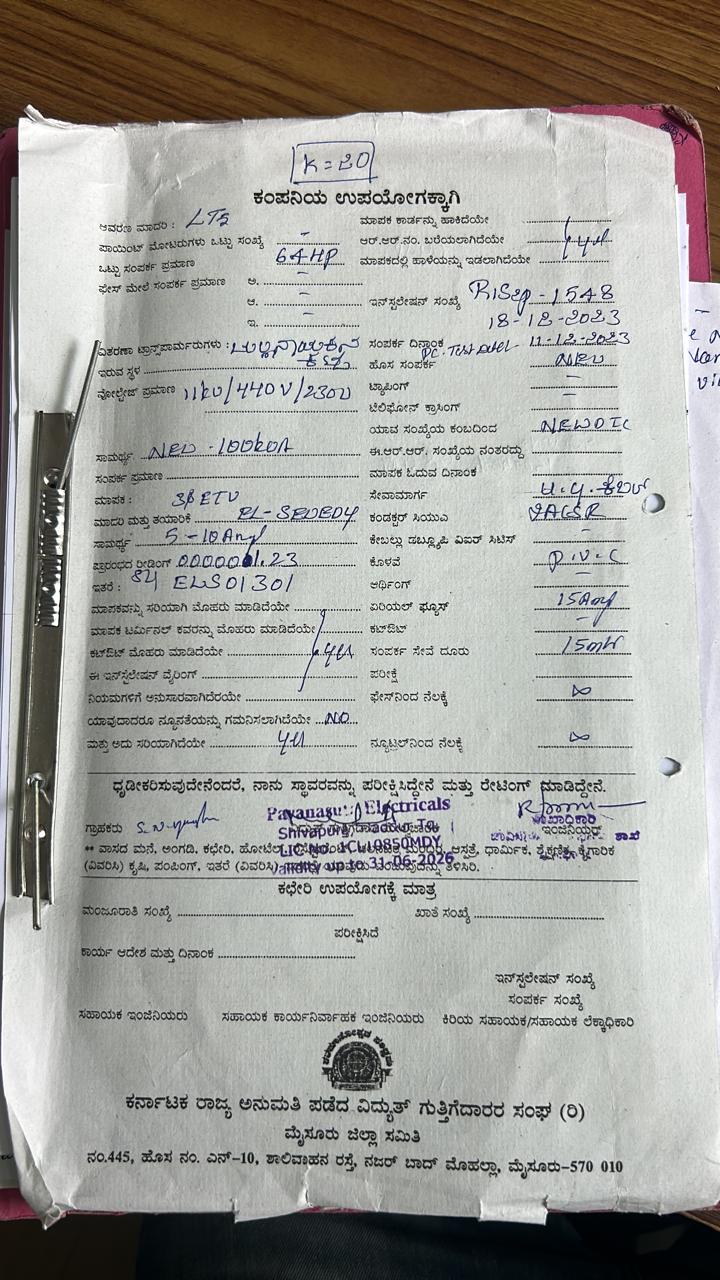 K=20
ಕಂಪನಿಯ ಉಪಯೋಗಕ್ಕಾಗಿ
ಆವರಣ ಮಾದರಿ : LT5 ಮಾಪಕ ಕಾರ್ಡನ್ನು ಹಾಕಿದೆಯೇ
ಪಾಯಿಂಟ್ ಮೋಟರುಗಳು ಒಟ್ಟು ಸಂಖ್ಯೆ - ಆರ್.ಆರ್.ನಂ. ಬರೆಯಲಾಗಿದೆಯೇ
ಒಟ್ಟು ಸಂಪರ್ಕ ಪ್ರಮಾಣ 64HP ಮಾಪಕದಲ್ಲಿ ಹಾಳೆಯನ್ನು ಇಡಲಾಗಿದೆಯೇ
ಫೇಸ್ ಮೇಲೆ ಸಂಪರ್ಕ ಪ್ರಮಾಣ ಅ. -
ಆ. - ಇನ್‌ಸ್ಟಲೇಷನ್ ಸಂಖ್ಯೆ -1548
ಇ. - 18-12-2023
ವಿತರಣಾ ಟ್ರಾನ್ಸ್‌ಫಾರ್ಮರುಗಳು : ಸಂಪರ್ಕ ದಿನಾಂಕ 11-12-2023
ಇರುವ ಸ್ಥಳ ಹೊಸ ಸಂಪರ್ಕ NEW
ವೋಲ್ಟೇಜ್ ಪ್ರಮಾಣ 11kV/440V/230V ಟ್ಯಾಪಿಂಗ್ -
ಟೆಲಿಫೋನ್ ಕ್ರಾಸಿಂಗ್ -
ಯಾವ ಸಂಖ್ಯೆಯ ಕಂಬದಿಂದ NEW DTC
ಸಾಮರ್ಥ್ಯ NEW - 100kVA ಈ.ಆರ್.ಆರ್. ಸಂಖ್ಯೆಯ ನಂತರದ್ದು -
ಸಂಪರ್ಕ ಪ್ರಮಾಣ ಮಾಪಕ ಓದುವ ದಿನಾಂಕ
ಮಾಪಕ : 3ϕ ETV ಸೇವಾಮಾರ್ಗ
ಮಾದರಿ ಮತ್ತು ತಯಾರಿಕೆ EL-SEWEDY ಕಂಡಕ್ಟರ್ ಸಿಯುಎ
ಸಾಮರ್ಥ್ಯ 5-10Amp ಕೇಬಲ್ಲು ಡಬ್ಲ್ಯೂಪಿ ವಿಐರ್ ಸಿಟಿಸ್ -
ಪ್ರಾರಂಭದ ರೀಡಿಂಗ್ ಕೊಳವೆ P.V.C
ಇತರೆ : ELS01301 ಅರ್ಥಿಂಗ್ -
ಮಾಪಕವನ್ನು ಸರಿಯಾಗಿ ಮೊಹರು ಮಾಡಿದೆಯೇ ಏರಿಯಲ್ ಫ್ಯೂಸ್ 15Amp
ಮಾಪಕ ಟರ್ಮಿನಲ್ ಕವರನ್ನು ಮೊಹರು ಮಾಡಿದೆಯೇ ಕಟ್‌ಔಟ್ -
ಕಟ್‌ಔಟ್ ಮೊಹರು ಮಾಡಿದೆಯೇ yes ಸಂಪರ್ಕ ಸೇವೆ ದೂರು
ಈ ಇನ್‌ಸ್ಟಲೇಷನ್ ವೈರಿಂಗ್ ಪರೀಕ್ಷೆ
ನಿಯಮಗಳಿಗೆ ಅನುಸಾರವಾಗಿದೆರಯೇ ಫೇಸ್‌ನಿಂದ ನೆಲಕ್ಕೆ ∞
ಯಾವುದಾದರೂ ನ್ಯೂನತೆಯನ್ನು ಗಮನಿಸಲಾಗಿದೆಯೇ NO
ಮತ್ತು ಅದು ಸರಿಯಾಗಿದೆಯೇ yes ನ್ಯೂಟ್ರಲ್‌ನಿಂದ ನೆಲಕ್ಕೆ ∞
ಧೃಡೀಕರಿಸುವುದೇನೆಂದರೆ, ನಾನು ಸ್ಥಾವರವನ್ನು ಪರೀಕ್ಷಿಸಿದ್ದೇನೆ ಮತ್ತು ರೇಟಿಂಗ್ ಮಾಡಿದ್ದೇನೆ.
Electricals
ಗ್ರಾಹಕರು Shivapura ಇಂಜಿನಿಯರ್ ಶಾಖೆ
** ವಾಸದ ಮನೆ, ಅಂಗಡಿ, ಕಛೇರಿ, ಹೋಟೆಲ್, ಆಸ್ಪತ್ರೆ, ಧಾರ್ಮಿಕ, ಶೈಕ್ಷಣಿಕ, ಕೈಗಾರಿಕ
(ವಿವರಿಸಿ) ಕೃಷಿ, ಪಂಪಿಂಗ್, ಇತರೆ (ವಿವರಿಸಿ) ತಿಳಿಸಿರಿ.
Validity up to 31-06-2026
ಕಛೇರಿ ಉಪಯೋಗಕ್ಕೆ ಮಾತ್ರ
ಮಂಜೂರಾತಿ ಸಂಖ್ಯೆ ಖಾತೆ ಸಂಖ್ಯೆ
ಪರೀಕ್ಷಿಸಿದೆ
ಕಾರ್ಯ ಆದೇಶ ಮತ್ತು ದಿನಾಂಕ
ಇನ್‌ಸ್ಟಲೇಷನ್ ಸಂಖ್ಯೆ
ಸಂಪರ್ಕ ಸಂಖ್ಯೆ
ಸಹಾಯಕ ಇಂಜಿನಿಯರು ಸಹಾಯಕ ಕಾರ್ಯನಿರ್ವಾಹಕ ಇಂಜಿನಿಯರು ಕಿರಿಯ ಸಹಾಯಕ/ಸಹಾಯಕ ಲೆಕ್ಕಾಧಿಕಾರಿ
ಕರ್ನಾಟಕ ರಾಜ್ಯ ಅನುಮತಿ ಪಡೆದ ವಿದ್ಯುತ್ ಗುತ್ತಿಗೆದಾರರ ಸಂಘ (ರಿ)
ಮೈಸೂರು ಜಿಲ್ಲಾ ಸಮಿತಿ
ನಂ.445, ಹೊಸ ನಂ. ಎನ್-10, ಶಾಲಿವಾಹನ ರಸ್ತೆ, ನಜರ್ ಬಾದ್ ಮೊಹಲ್ಲಾ, ಮೈಸೂರು-570 010